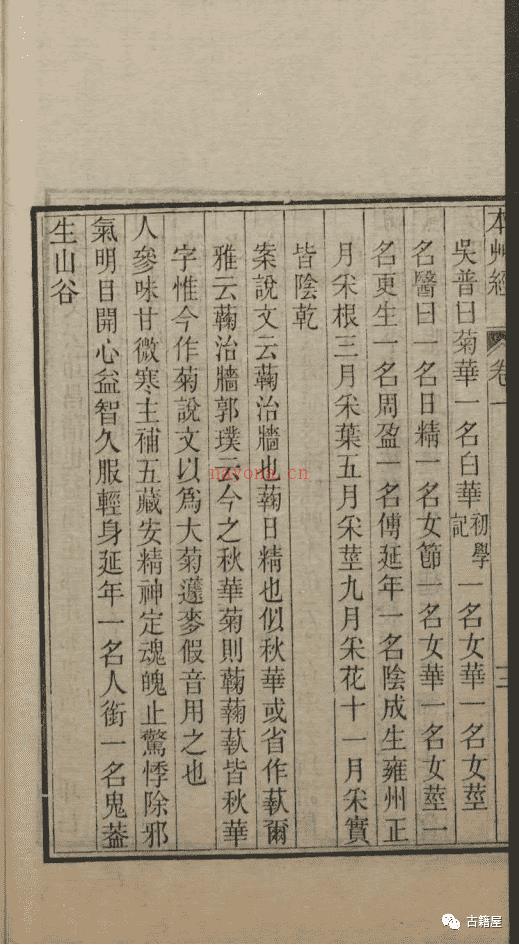 本艸經 卷一 三
吳普曰菊華一名白華初學記一名女華一名女莖
名醫曰一名日精一名女節一名女華一名女莖一
名更生一名周盈一名傅延年一名陰成生雍州正
月采根三月采葉五月采莖九月采花十一月采實
皆陰乾
案說文云蘜治牆也蘜日精也似秋華或省作䓶爾
雅云蘜治牆郭璞云今之秋華菊則蘜蘜䓶皆秋華
字惟今作菊說文以爲大菊蘧麥假音用之也
人參味甘微寒主補五藏安精神定魂魄止驚悸除邪
氣明目開心益智久服輕身延年一名人銜一名鬼蓋
生山谷
nayona.cn
古籍屋